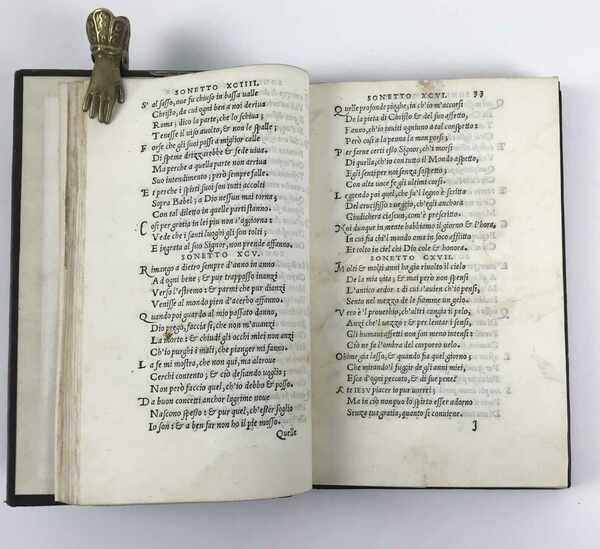 SONETTO XCIIII.
S'al sasso, oue fu chiuso in bassa ualle
Christo, da cui ogni ben a noi deriua
Roma; dico la parte, che lo schiua;
Tenesse il uiso auolto, & non le spalle;
Forse che gli suoi passi a miglior calle
Di speme drizzarebbe & fede uiua.
Ma perche a quella parte non arriua
Suo intendimento; però sempre falle.
E perche i spirti suoi son tutti accolti
Sopra Babel; a Dio nessun mai torna;
Con tal diletto in quelle parti stanno.
Cosi per gratia in lei piu non s'aggiorna:
Vede che i santi luoghi gli son tolti;
E ingrata al suo Signor, non prende affanno.
SONETTO XCV.
Rimango a dietro sempre d'anno in anno
Ad ogni bene; & pur trappasso inanzi
Verso l'estremo: & parmi che pur dianzi
Venisse al mondo pien d'acerbo affanno.
Quando poi guardo al mio passato danno,
Dio prego, faccia sì, che non m'auanzi
La morte: & chiudi gli occhi miei non anzi
Ch'io purghi i mali, che pianger mi fanno.
La fe mi mostra, che non qui, ma altroue
Cerchi contento; & ciò desiando uoglio;
Non però faccio quel, ch'io debbo & posso.
Da buon concetti anchor lagrime noue
Nascono spesso: & pur quel, ch'esser soglio
Io son: & a ben far non ho il piè mosso.
Quelle
SONETTO XCVI. 33
Quelle profonde piaghe, in ch'io m'accorsi
De la pietà di Christo & del suo affetto,
Fanno, ch'io tenti ogniuno a tal conspetto:
Però così a la penna la man porsi.
Per farne certi esso Signor, ch'i morsi
Di quella, ch'io con tutto il Mondo aspetto,
Egli sentì per noi senza sospetto;
Con alta uoce gli ultimi corsi.
Leggendo poi quel, che su'l legno è scritto
Del crucifisso: ueggio, ch'egli anchora
Giudicherà ciascun, com'è prescritto.
Noi dunque in mente habbiamo il giorno & l'hora
In cui fia ch'il mondo ema in foco afflitto
Et tolto in ciel chi Dio cole & honora.
SONETTO CXVII.
Molti & molti anni ha gia riuolto il cielo
De la mia uita; & mai non par ch'io pensi,
L'antico ardor: di cui s'auien ch'io pensi,
Sento nel mezzo de le fiamme un gelo.
Vero è'l prouerbio, ch'altri cangia il pelo
Anzi che'l uezzo; & per lentar i sensi,
Gli humani affetti non son meno intensi,
Ciò ne fa l'ombra del corporeo uelo.
Ohime, gia lasso, & quando fia quel giorno;
Che mirando'l fuggir de gli anni miei,
Esca d'ogni peccato, & di sue pene?
A te IESV piacer io pur uorrei;
Ma ciò non puo lo spirto esser adorno
Senza tua gratia, quanto si conuiene.
J